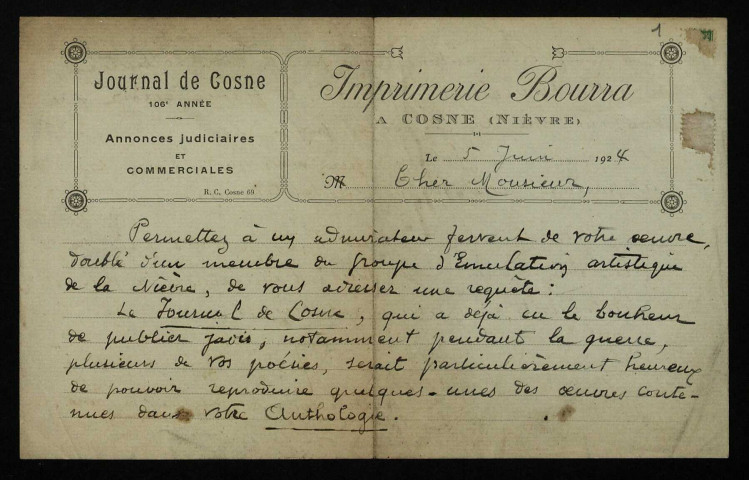 1
Journal de Cosne
106e ANNÉE
Annonces Judiciaires
ET
COMMERCIALES
R. C. Cosne 69
Imprimerie Bourra
A COSNE (NIÈVRE)
Le 5 Juin 1924
M Cher Monsieur,
Permettez à un admirateur fervent de votre œuvre,
doublé d'un membre du groupe d'Emulation artistique
de la Nièvre, de vous adresser une requête :
Le Journal de Cosne, qui a déjà eu le bonheur
de publier jadis, notamment pendant la guerre,
plusieurs de vos poésies, serait particulièrement heureux
de pouvoir reproduire quelques-unes des œuvres conte-
nues dans votre Anthologie.